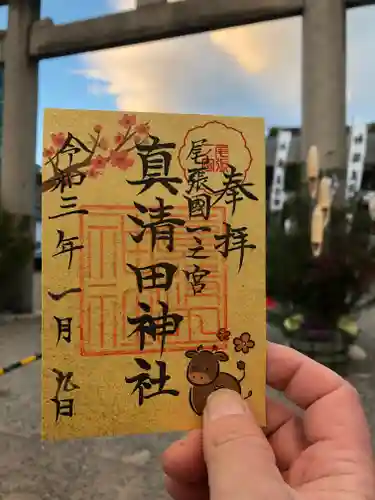 奉拝
尾張国一之宮
真清田神社
令和三年一月九日